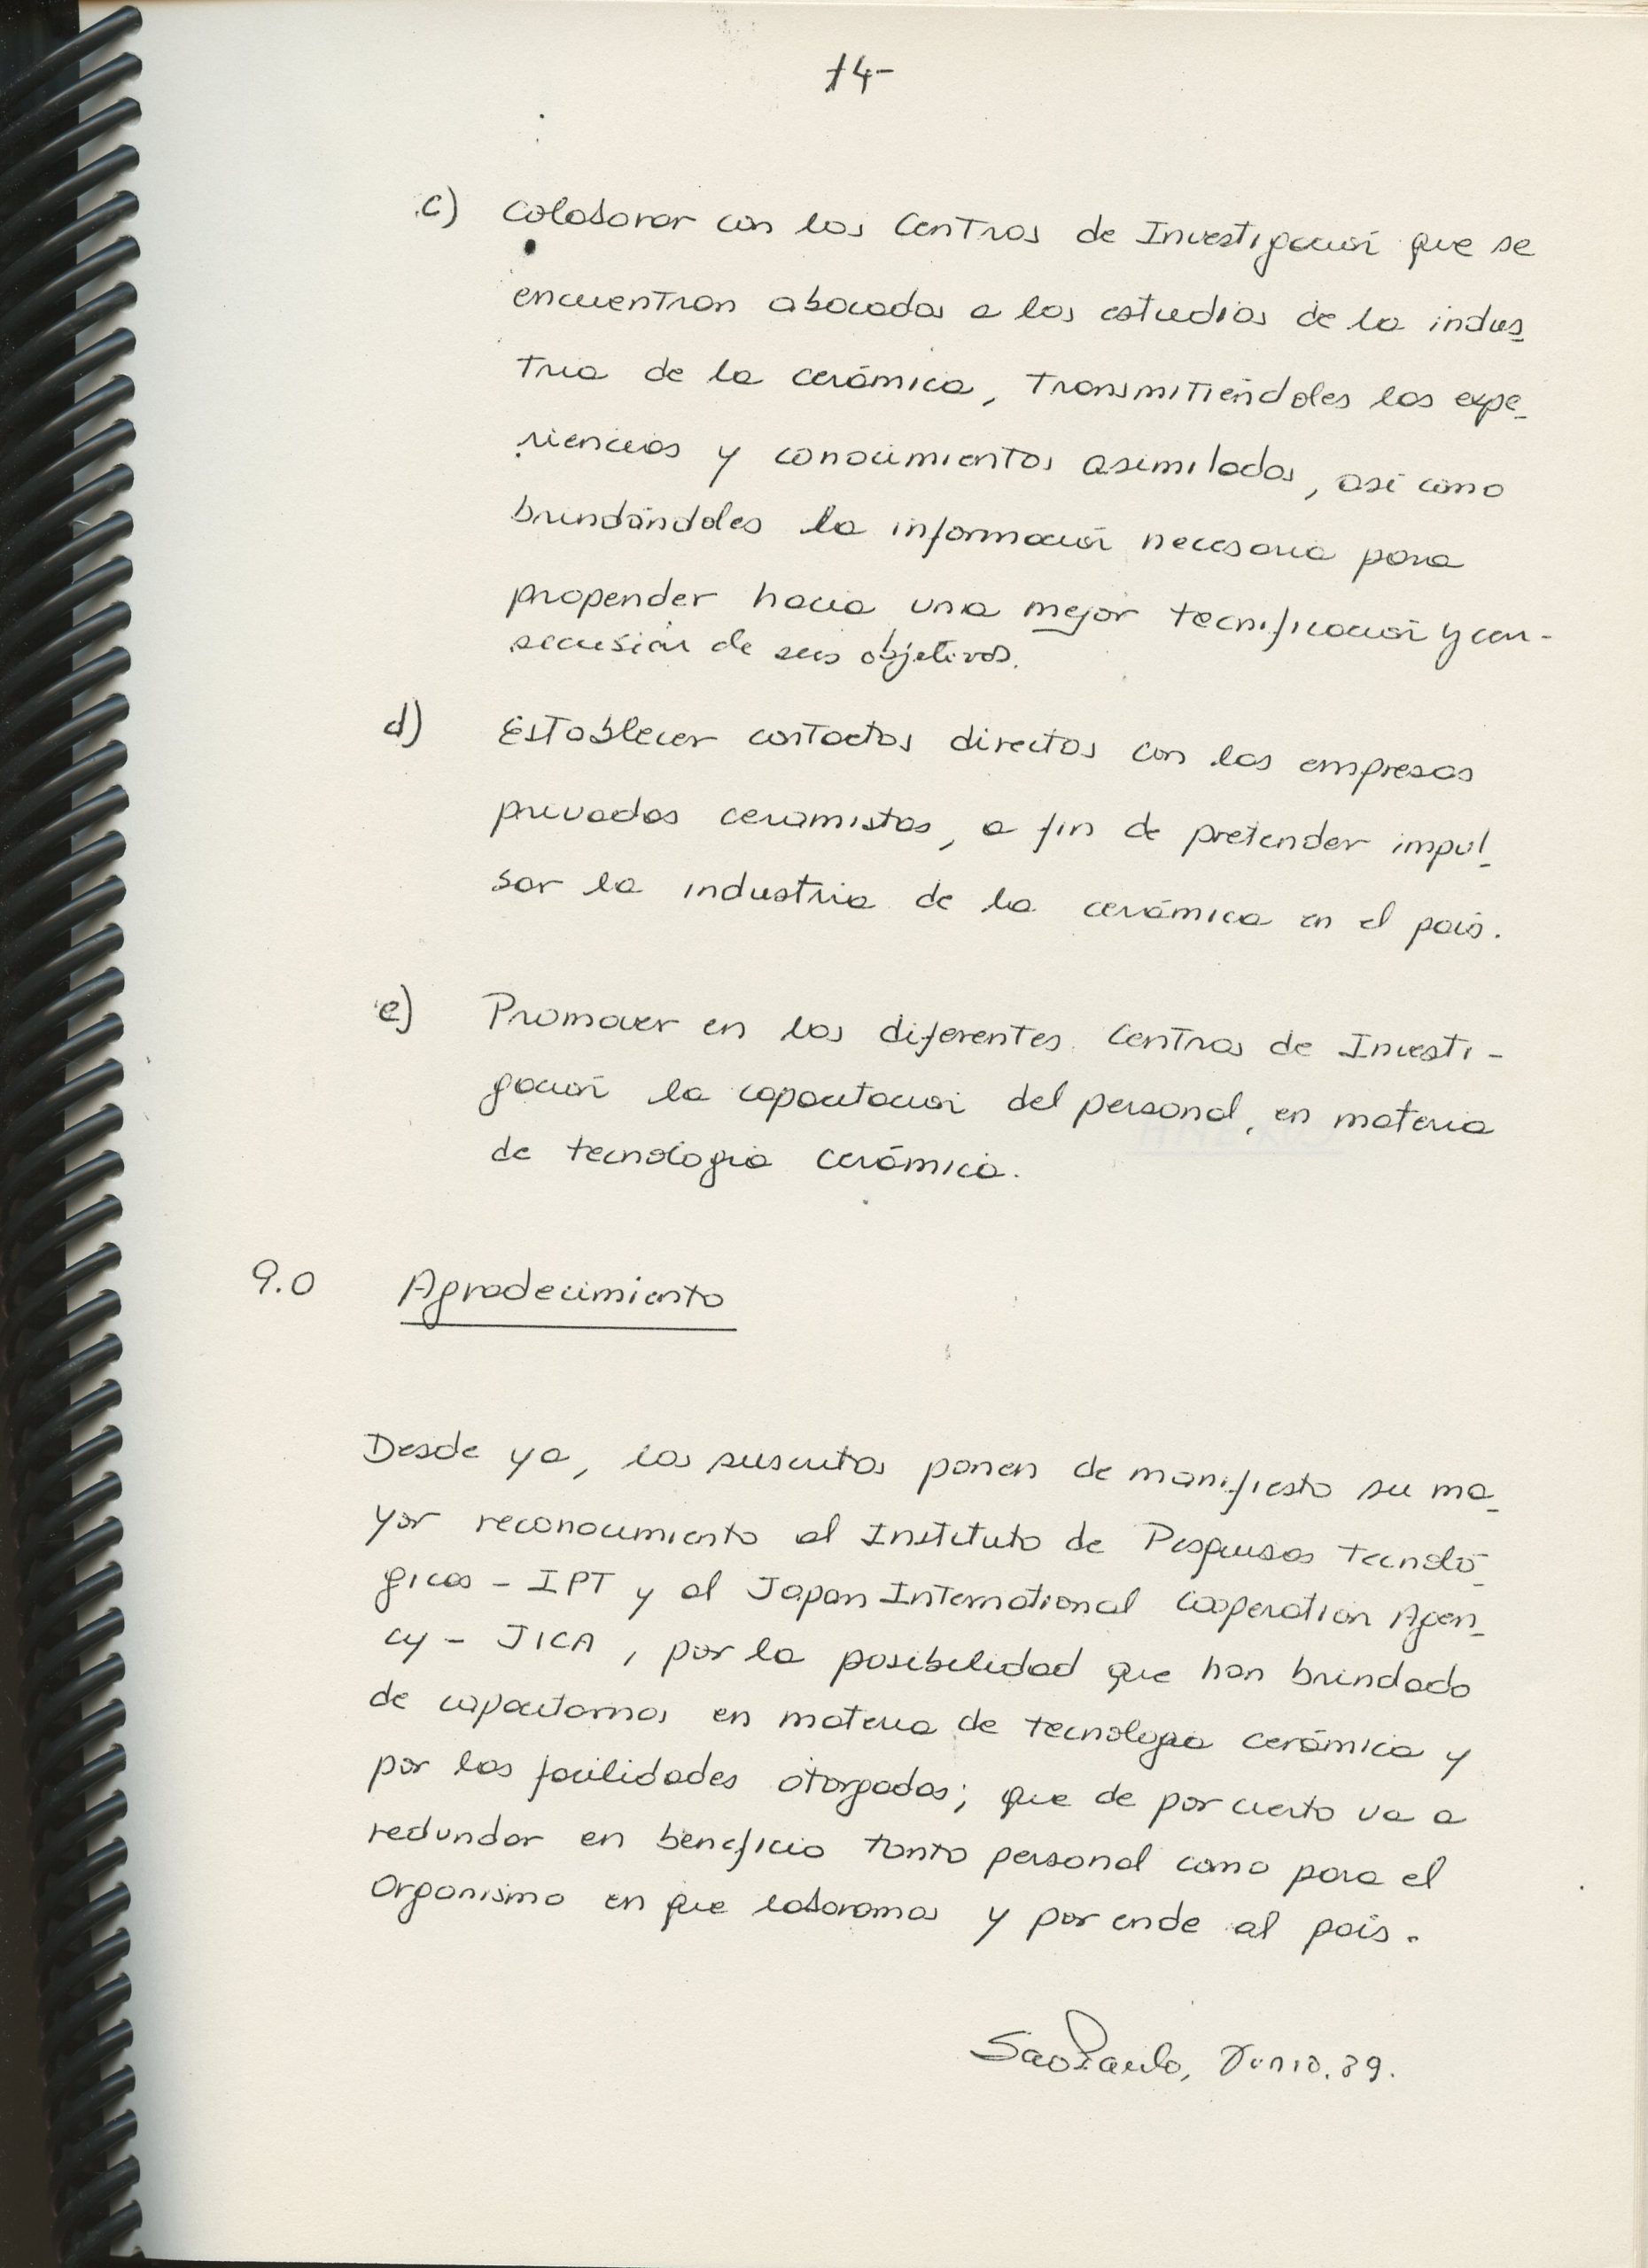 14-
c) Colaborar con los Centros de Investigación que se
encuentran abocados a los estudios de la indus_
tria de la cerámica, transmitiéndoles las expe_
riencias y conocimientos asimilados, así como
brindándoles la información necesaria para
propender hacia una mejor tecnificación y con-
secusión de sus objetivos.
d) Establecer contactos directos con las empresas
privadas ceramistas, a fin de pretender impul_
sar la industria de la cerámica en el país.
e) Promover en los diferentes Centros de Investi-
gación la capacitación del personal, en materia
de tecnología cerámica.
9.0 Agradecimiento
Desde ya, los suscritos ponen de manifiesto su ma_
yor reconocimiento al Instituto de Pesquisas Tecnoló_
gicas - IPT y al Japan International Cooperation Agen_
cy - JICA, por la posibilidad que han brindado
de capacitarnos en materia de tecnología cerámica y
por las facilidades otorgadas; que de por cierto va a
redundar en beneficio tanto personal como para el
Organismo en que laboramos y por ende al país.
Sao Paulo, Junio. 89.